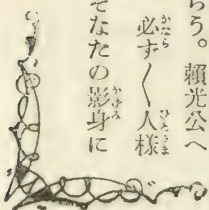 らう。賴光公へ
必ず〳〵人様
そなたの影身に